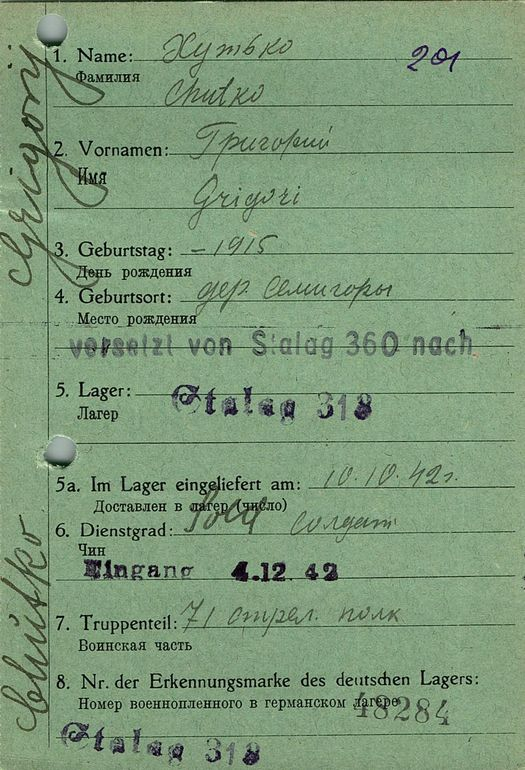 1. Name: Хутько
201
Фамилия
Chutko
2. Vornamen: Григорий
Имя
Grigori
3. Geburtstag: – 1915
День рождения
4. Geburtsort: дер. Семигоры
Место рождения
versetzt von Stalag 360 nach
5. Lager: Stalag 318
Лагер
5a. Im Lager eingeliefert am: 10.10.42г.
Доставлен в лагер (число)
6. Dienstgrad: Sold солдат
Чин
Eingang 4.12.42
7. Truppenteil: 71 стрел. полк
Воинская часть
8. Nr. der Erkennungsmarke des deutschen Lagers:
Номер военнопленного в германском лагере
48284
Stalag 318
Chutko Grigorij